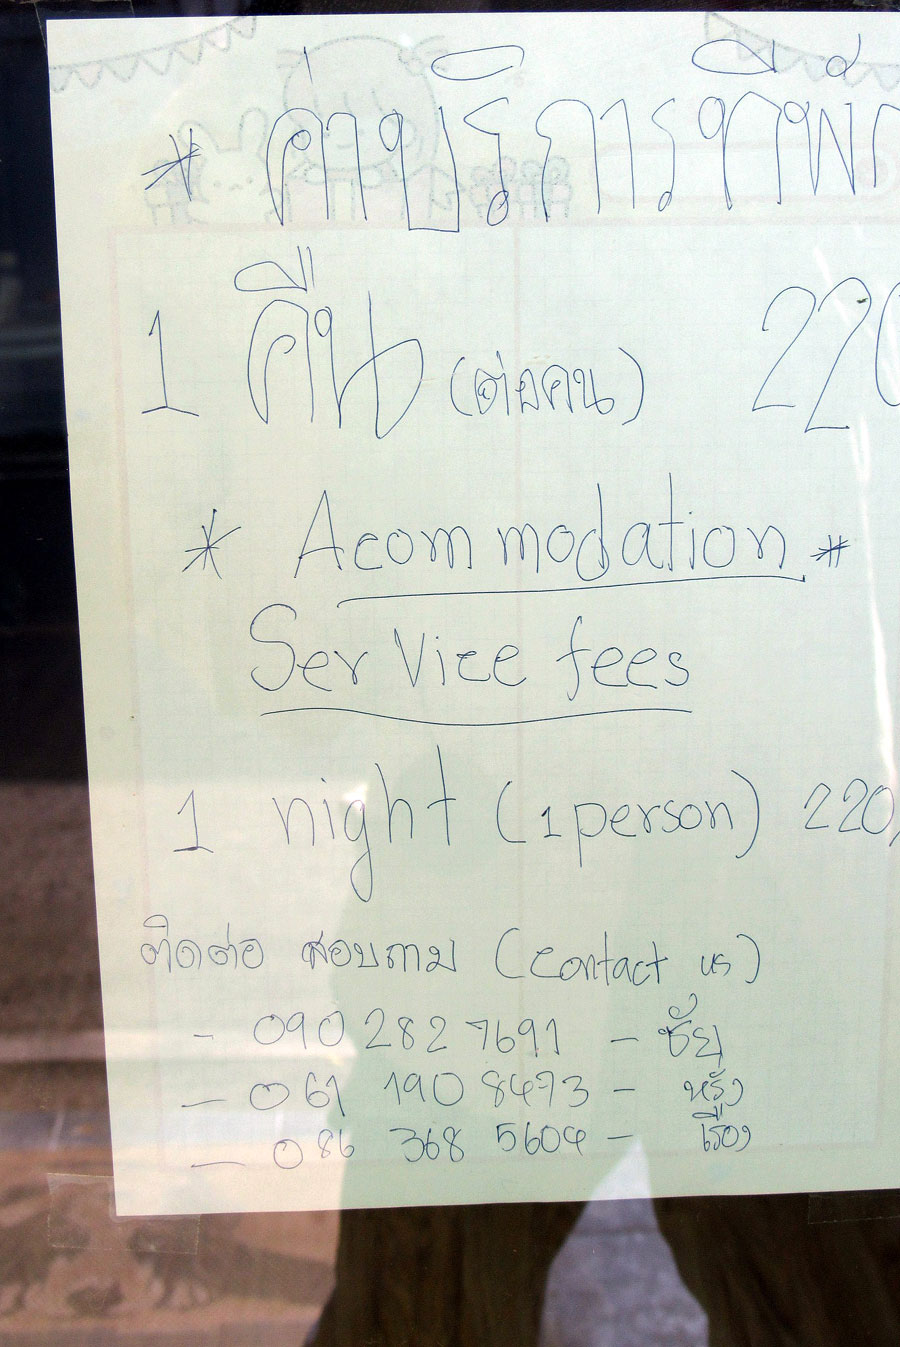 * ค่าบริการที่พัก
1 คืน (ต่อคน) 220
* Acommodation *
Service fees
1 night (1 person) 220,
ติดต่อ สอบถาม (contact us)
- 090 282 7691 - ชัย
- 061 190 8473 - หรั่ง
- 086 368 5604 - เรือง